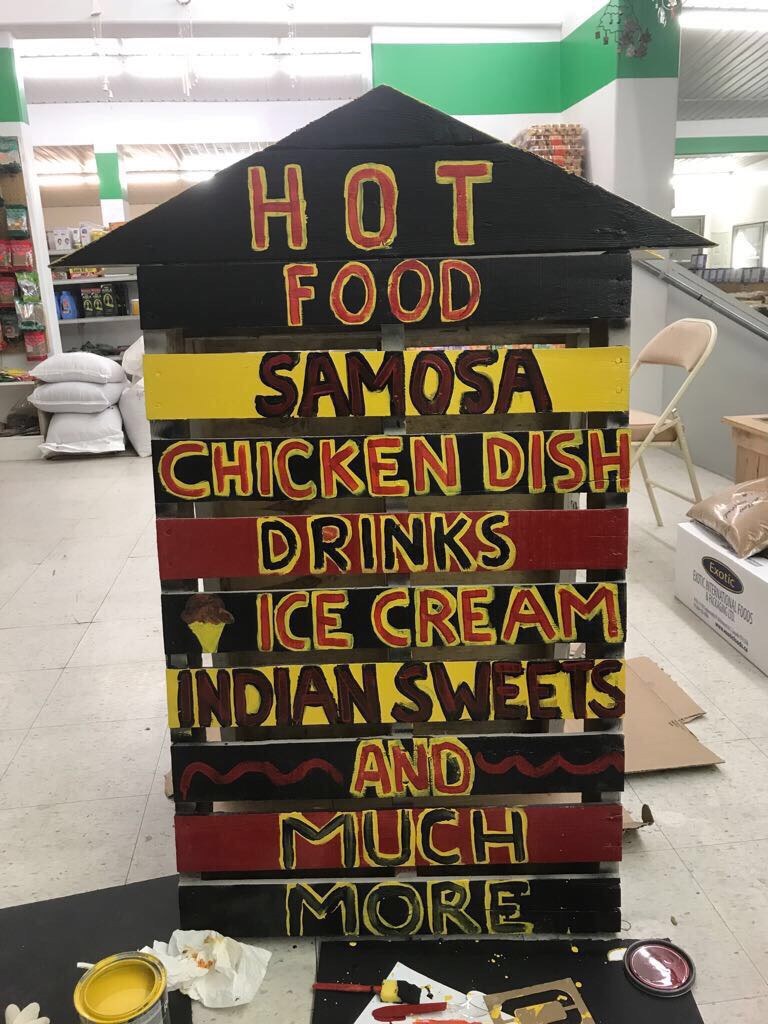 HOT
FOOD
SAMOSA
CHICKEN DISH
DRINKS
ICE CREAM
INDIAN SWEETS
AND
MUCH
MORE
Exotic
EXOTIC INTERNATIONAL FOODS
& PACKAGING LTD.